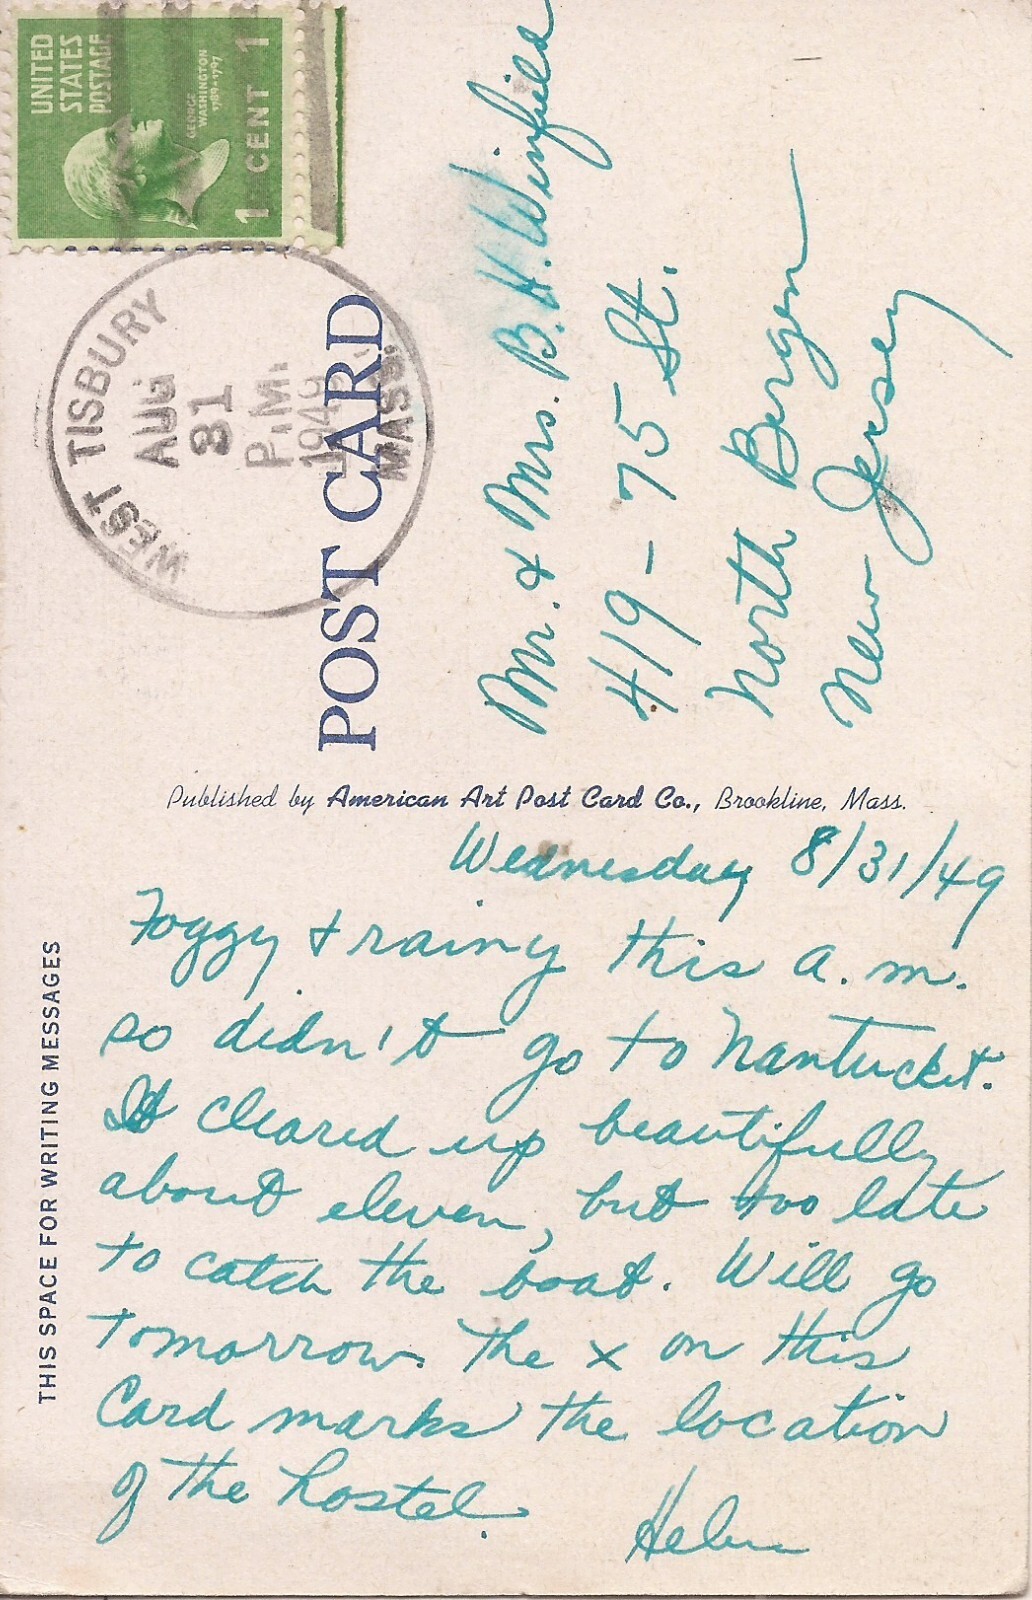 UNITED
STATES
POSTAGE
GEORGE
WASHINGTON
1789-1797
1 CENT 1
WEST TISBURY
AUG
31
P.M.
1949
MASS.
POST CARD
Mr. & Mrs. B. H. Winfield
419-75 St.
North Bergen
New Jersey
Published by American Art Post Card Co., Brookline, Mass.
THIS SPACE FOR WRITING MESSAGES
Wednesday 8/31/49
Foggy & rainy this a.m.
so didn't go to Nantucket.
It cleared up beautifully
about eleven, but too late
to catch the boat. Will go
tomorrow. The x on this
Card marks the location
of the hostel.
Helen